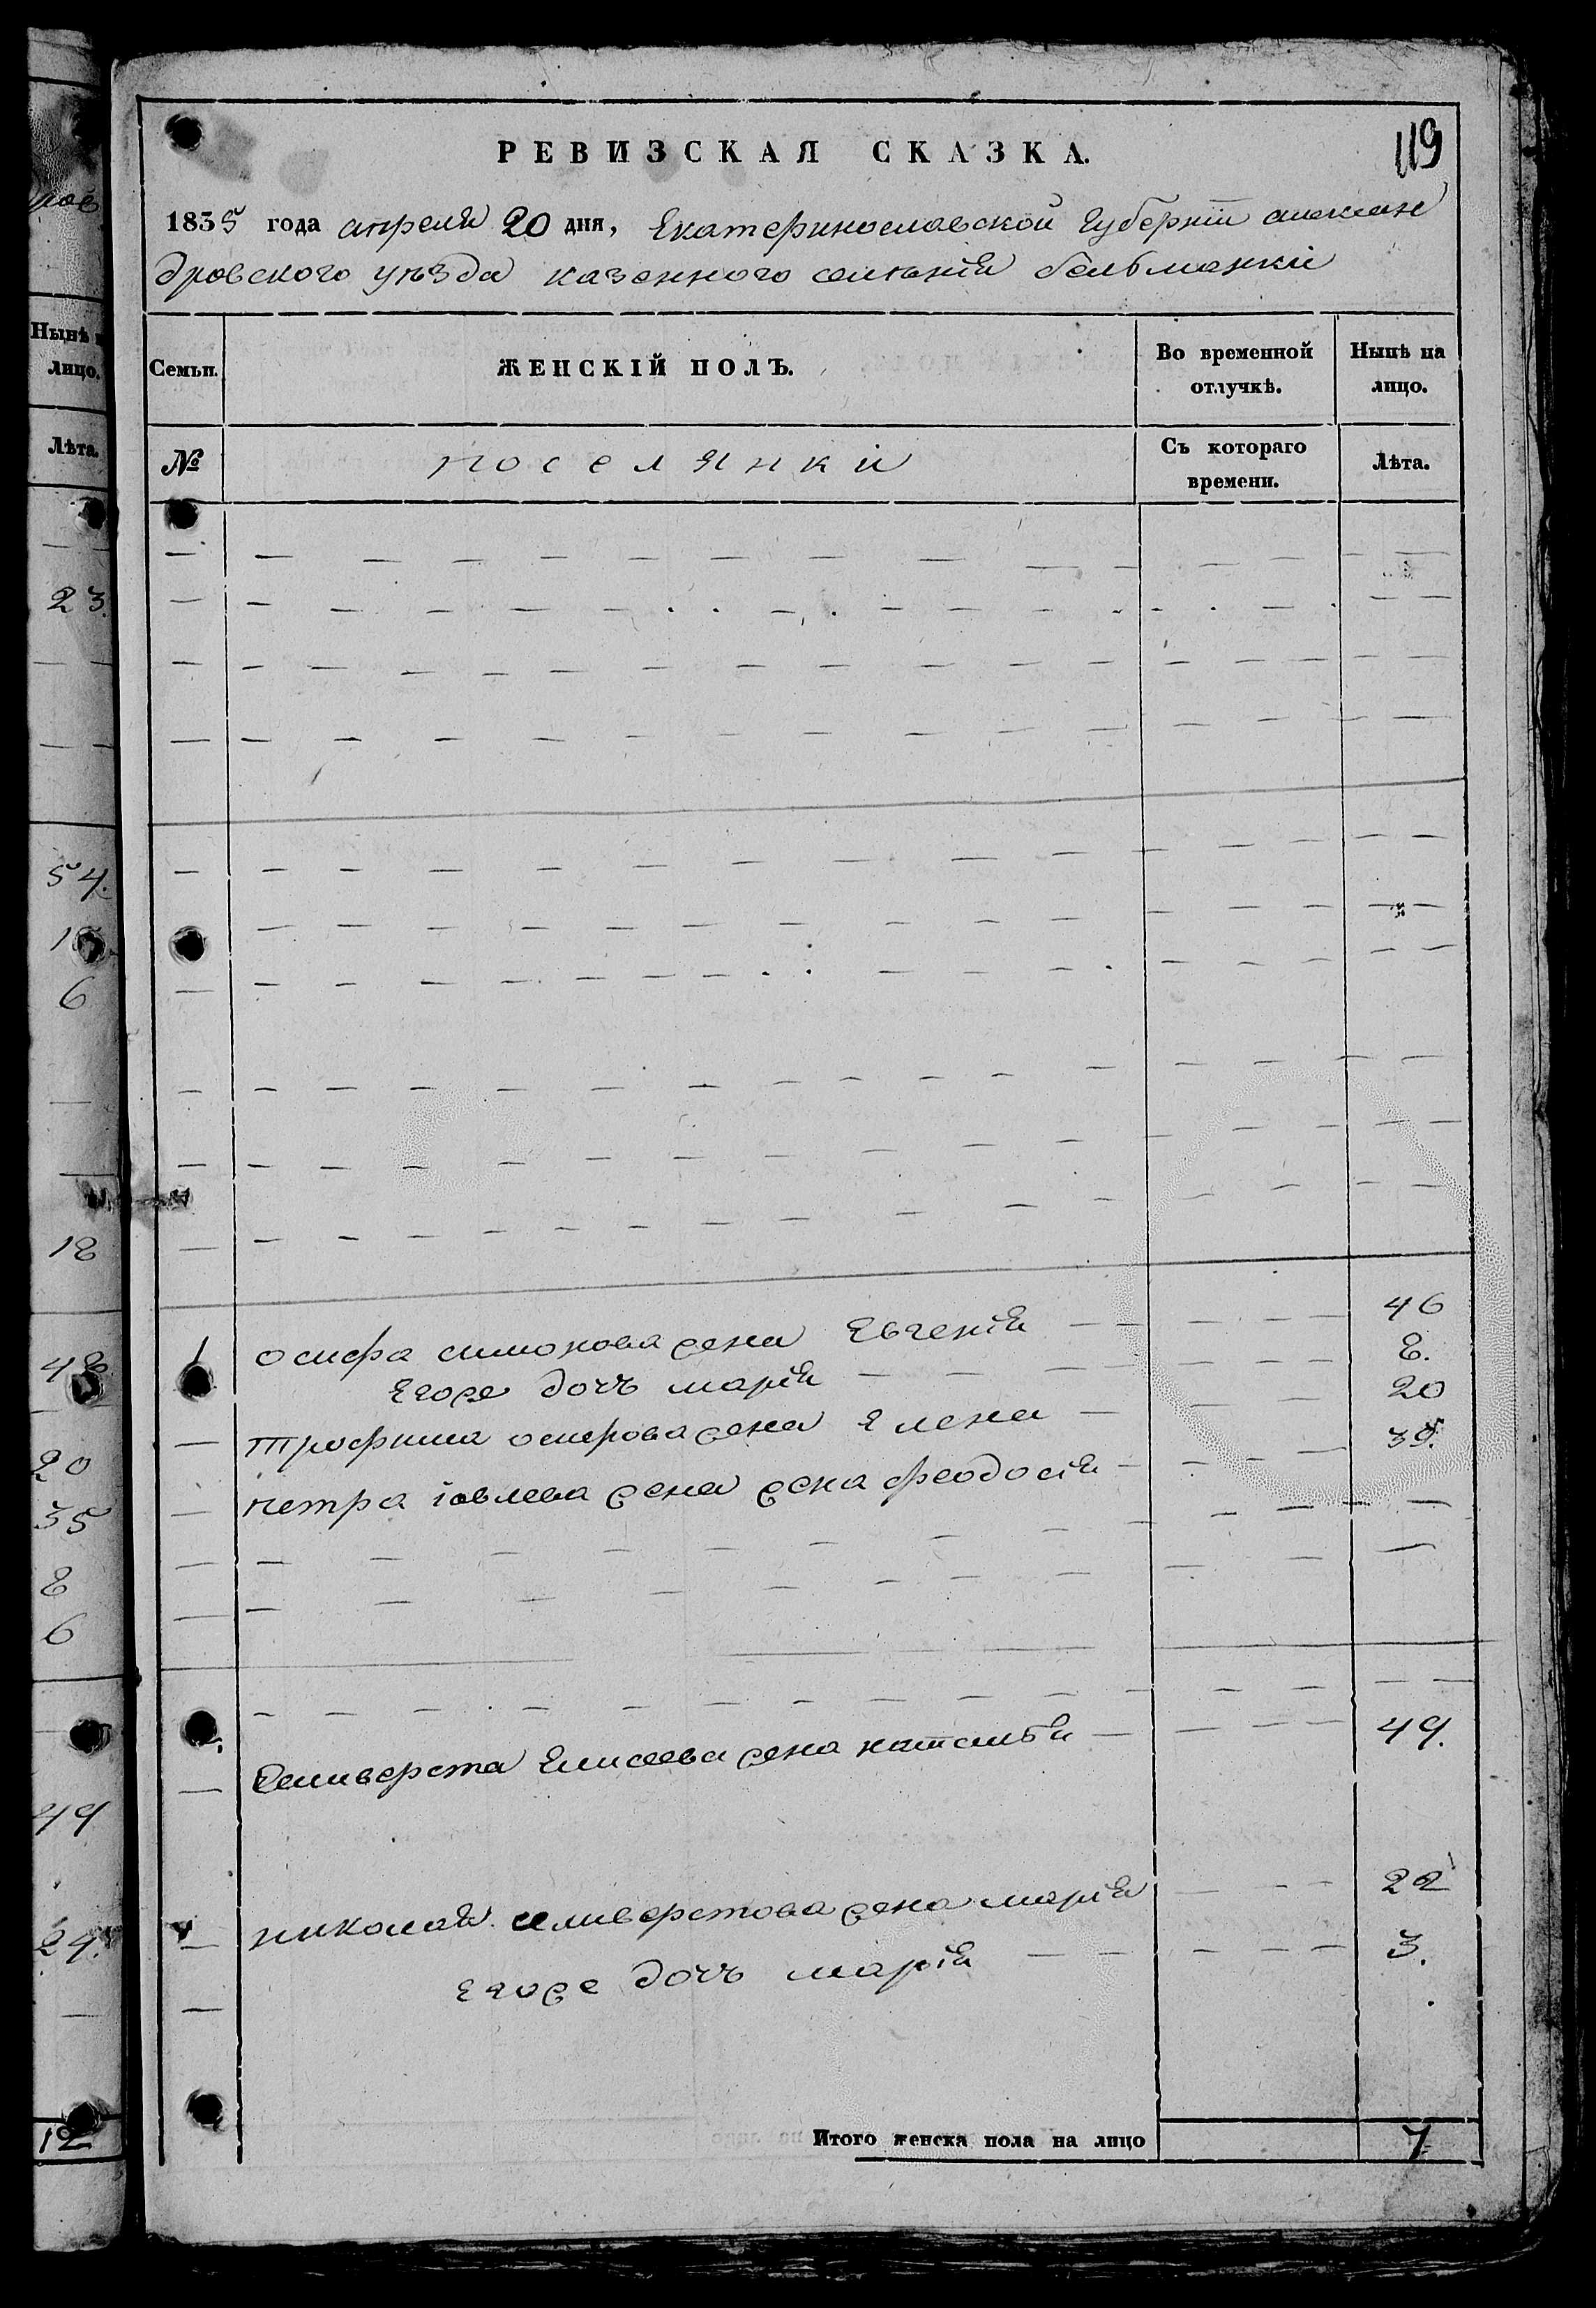 РЕВИЗСКАЯ СКАЗКА.
119
1835 года апреля 20 дня, Екатеринославской Губернiи алексан
дровского уѣзда казенного селенiя белбманки
Семьи.
ЖЕНСКІЙ ПОЛЪ.
Во временной отлучкѣ.
Нынѣ на лицо.
№
поселянки
Съ котораго времени.
Лѣта.
осифа симонова жена Евгенiя 46
Егоже дочъ марiя 8.
трофима осифова жена Елена 20
петра iовлева жена жена феодосiя 39.
Селиверста Елисеева жена наталья 49.
николая селиверстова жена марiя 22
Егоже дочъ марiя 3.
Итого женска пола на лицо 7.
Нынѣ
лицо.
Лѣта.
23.
54.
6
18
20
35
8
6
49
24.
12